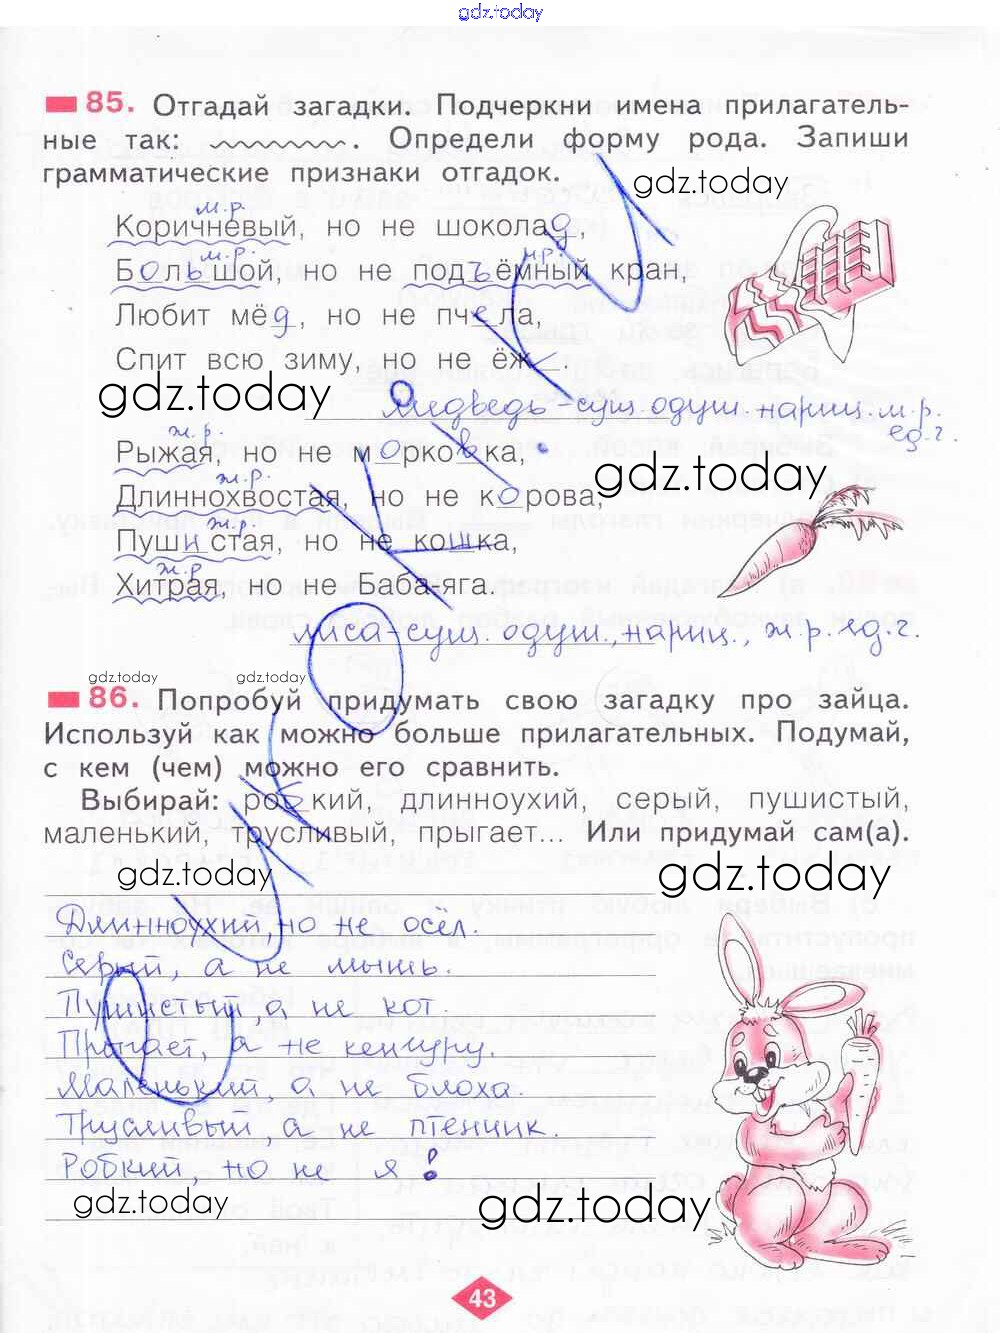 gdz.today
85. Отгадай загадки. Подчеркни имена прилагатель-
ные так: . Определи форму рода. Запиши
грамматические признаки отгадок.
gdz.today
м.р.
Коричневый, но не шоколад,
м.р. м.р.
Большой, но не подъёмный кран,
Любит мёд, но не пчела,
Спит всю зиму, но не ёж.
gdz.today
медведь - сущ. одуш. нариц. м.р.
ед.ч.
ж.р.
Рыжая, но не морковка,
gdz.today
ж.р.
Длиннохвостая, но не корова,
ж.р.
Пушистая, но не кошка,
ж.р
Хитрая, но не Баба-яга.
лиса - сущ. одуш., нариц., ж.р. ед.ч.
gdz.today gdz.today
86. Попробуй придумать свою загадку про зайца.
Используй как можно больше прилагательных. Подумай,
с кем (чем) можно его сравнить.
Выбирай: робкий, длинноухий, серый, пушистый,
маленький, трусливый, прыгает... Или придумай сам(а).
gdz.today gdz.today
Длинноухий, но не осёл.
Серый, а не мышь.
Пушистый, а не кот
Прыгает, а не кенгуру.
Маленький, а не блоха.
Трусливый а не птенчик.
Робкий, но не я!
gdz.today gdz.today
43